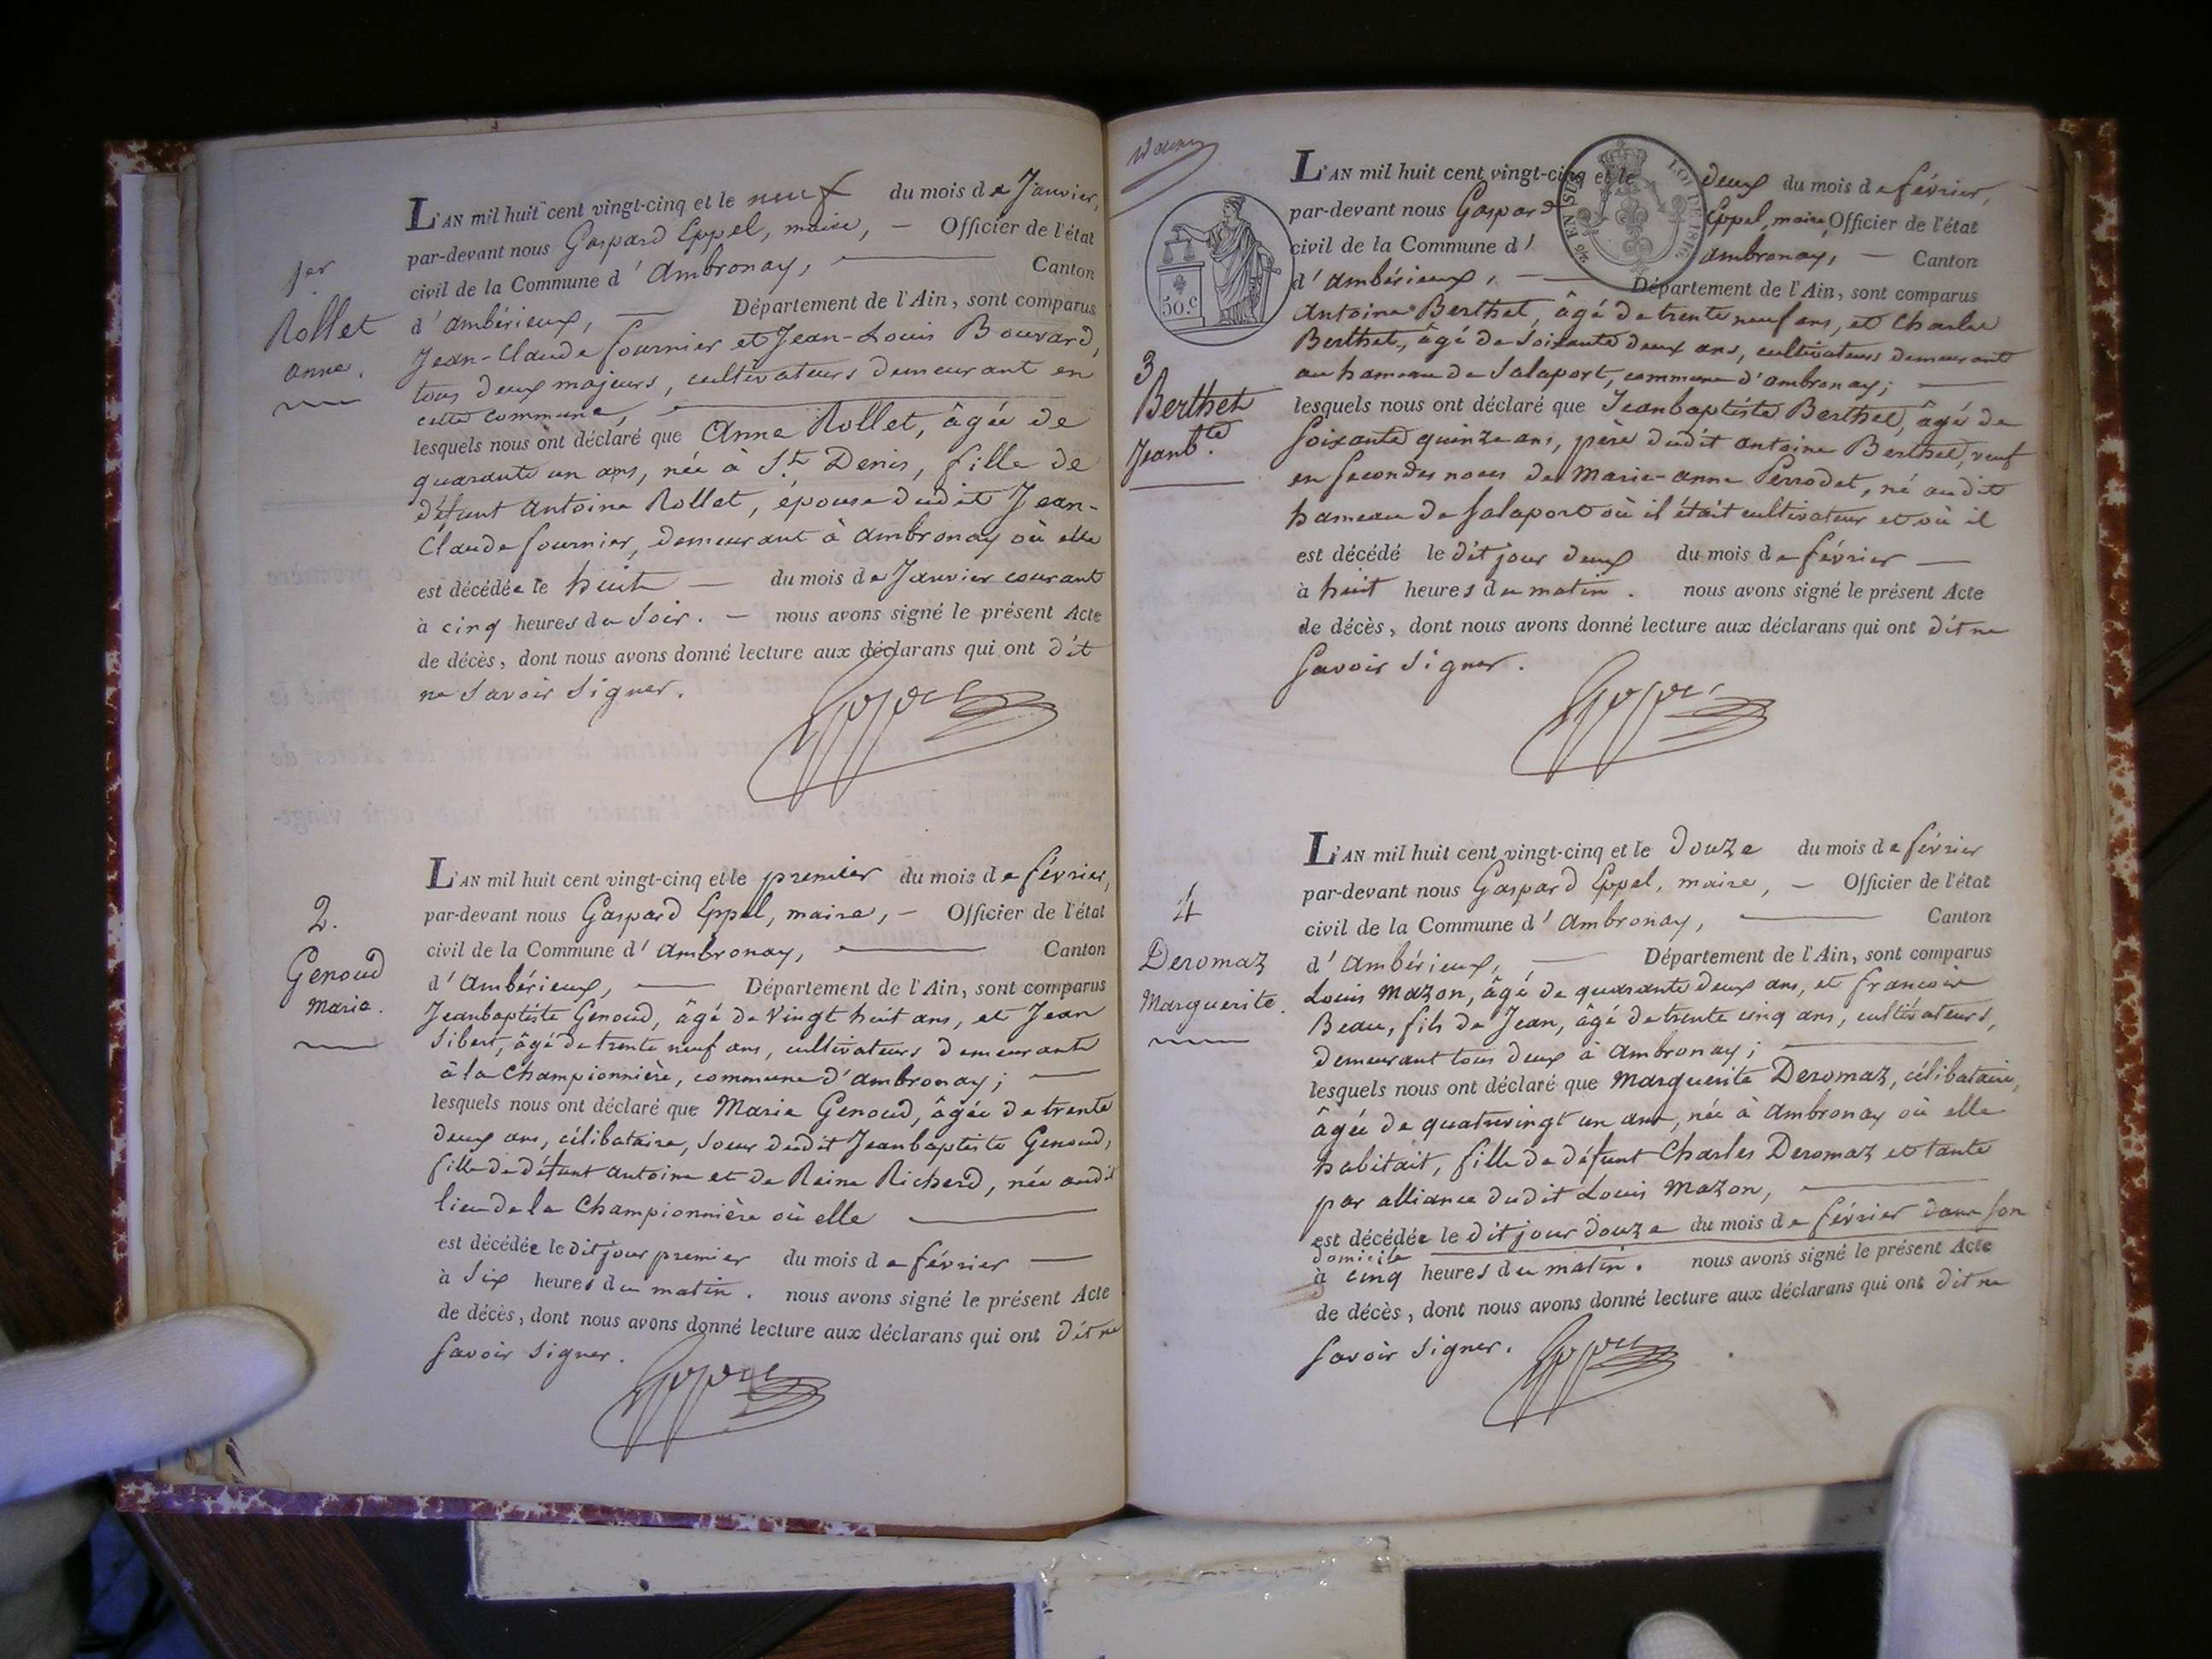 1er
Rollet
anne.
L'AN mil huit cent vingt-cinq et le neuf du mois de Janvier,
par-devant nous Gaspard Eppel, maire, — Officier de l'état
civil de la Commune d'Ambronay, — Canton
d'ambérieux, — Département de l'Ain, sont comparus
Jean-Claude fournier et Jean-Louis Bouvard,
tous deux majeurs, cultivateurs demeurant en
cette commune, —
lesquels nous ont déclaré que Anne Rollet, âgée de
quarante un ans, née à St. Denis, fille de
défunt Antoine Rollet, épouse dudit Jean-
Claude fournier, demeurant à ambronay où elle
est décédée le huit — du mois de Janvier courant
à cinq heures du soir. — nous avons signé le présent Acte
de décès, dont nous avons donné lecture aux déclarans qui ont dit
ne savoir signer.
Eppel
2.
Genoud
Marie.
L'AN mil huit cent vingt-cinq et le premier du mois de février,
par-devant nous Gaspard Eppel, maire, — Officier de l'état
civil de la Commune d'ambronay, — Canton
d'Ambérieux, — Département de l'Ain, sont comparus
Jeanbaptiste Genoud, âgé de vingt huit ans, et Jean
Sibert, âgé de trente neuf ans, cultivateurs demeurants
à la Championnière, commune d'ambronay; —
lesquels nous ont déclaré que Marie Genoud, âgée de trente
deux ans, célibataire, soeur dudit Jeanbaptiste Genoud,
fille de défunt antoine et de Reine Richerd, née audit
lieu de la Championnière où elle —
est décédée le dit jour premier du mois de février —
à six heures du matin. nous avons signé le présent Acte
de décès, dont nous avons donné lecture aux déclarans qui ont dit ne
savoir signer.
Eppel
50.c
LOI DE 1816
3
Berthet
Jeanb.te
L'AN mil huit cent vingt-cinq et le deux du mois de février,
par-devant nous Gaspard Eppel, maire, Officier de l'état
civil de la Commune d'ambronay, — Canton
d'ambérieux, — Département de l'Ain, sont comparus
Antoine Berthet, âgé de trente neuf ans, et Charles
Berthet, âgé de soixante deux ans, cultivateurs demeurant
au hameau de Salaport, commune d'ambronay; —
lesquels nous ont déclaré que Jeanbaptiste Berthet, âgé de
soixante quinze ans, père dudit antoine Berthet, veuf
en secondes noces de Marie-anne Perrodet, né audit
hameau de salaport où il était cultivateur et où il
est décédé le dit jour deux du mois de février —
à huit heures du matin. nous avons signé le présent Acte
de décès, dont nous avons donné lecture aux déclarans qui ont dit ne
savoir signer.
Eppel
4
Deromaz
Marguerite.
L'AN mil huit cent vingt-cinq et le douze du mois de février
par-devant nous Gaspard Eppel, maire, — Officier de l'état
civil de la Commune d'Ambronay, — Canton
d'Ambérieux, — Département de l'Ain, sont comparus
Louis Mazon, âgé de quarante deux ans, et francois
Beau, fils de Jean, âgé de trente cinq ans, cultivateurs,
demeurant tous deux à Ambronay; —
lesquels nous ont déclaré que Marguerite Deromaz, célibataire,
âgée de quatrevingt un ans, née à Ambronay où elle
habitait, fille de défunt Charles Deromaz et tante
par alliance dudit Louis Mazon, —
est décédée le dit jour douze du mois de février dans son
domicile
à cinq heures du matin. nous avons signé le présent Acte
de décès, dont nous avons donné lecture aux déclarans qui ont dit ne
savoir signer.
Eppel